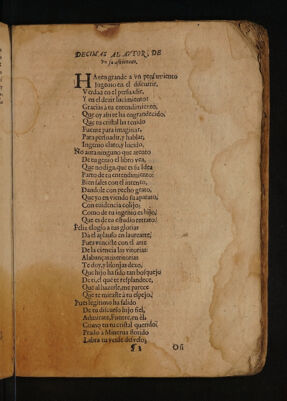 DECIMAS AL AVTOR, DE
vn su aficionado.
HAzen grande a vn pensamiento
Ingenio en el discurrir,
Verdad en el persuadir,
Y en el dezir lucimiento:
Gracias à tu entendimiento,
Que oy assi te ha engrandecido,
Que tu cristal has tenido
Fuente para imaginar,
Para persuadir, y hablar,
Ingenio claro, y lucido.
No aura ninguno que atento
De tu genio el libro vea,
Que no diga, que es su Idea
Parto de tu entendimiento:
Bien sales con el intento,
Dandole con pecho grato,
Que yo en viendo su aparato,
Con euidencia colijo,
Como de tu ingenio es hijo,
Que es de tu estudio retrato.
Feliz elogio a tus glorias
Dà el aplauso en laurearte,
Pues venciste con el arte
De la ciencia las vitorias:
Alabanças
Te doy, y lisonjas dexo,
Que hijo ha sido tan bosquejo
De ti, el que te resplandece,
Que al me parece
Que te miraste a tu espejo,
Pues legitimo ha salido
De tu discurso hijo fiel,
Admirate, Fuente, en èl,
Como en tu cristal
Prado à Minerua florido
Labra tu verde